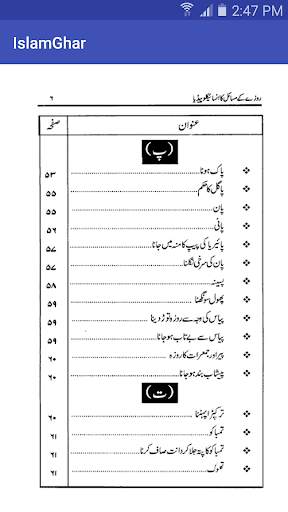 2:47 PM
IslamGhar
روزے کے مسائل کا انسائیکلوپیڈیا ۶
عنوان صفحہ
(پ)
❖ پاک ہونا ۵۳
❖ پاگل کا حکم ۵۵
❖ پان ۵۵
❖ پانی ۵۶
❖ پائیریا کی پیپ کا منہ میں جانا ۵۷
❖ پان کی سرخی نگلنا ۵۷
❖ پسینہ ۵۸
❖ پھول سونگھنا ۵۹
❖ پیاس کی وجہ سے روزہ توڑ دینا ۵۹
❖ پیاس سے بے تاب ہو جانا ۵۹
❖ پیر اور جمعرات کا روزہ ۶۰
❖ پیشاب بند ہو جانا ۶۰
(ت)
❖ تر کپڑا پہننا ۶۰
❖ تمباکو ۶۱
❖ تمباکو کا پتہ جلا کر دانت صاف کرنا ۶۱
❖ تھوک ۶۱